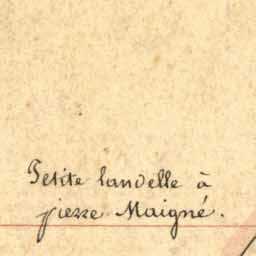 Petite landelle à
pierre Maigné.